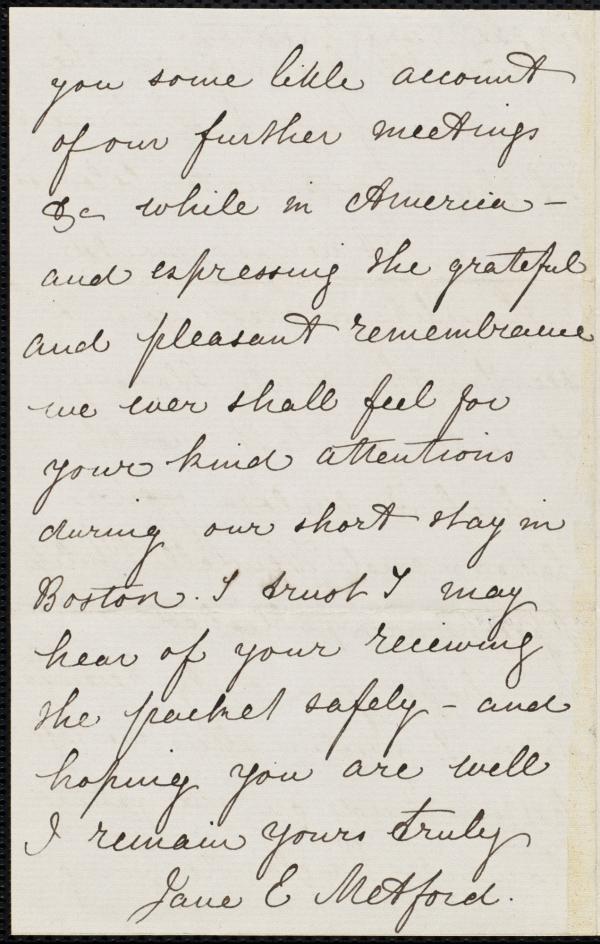 you some little account
of our further meetings
&c while in America -
and expressing the grateful
and pleasant remembrance
we ever shall feel for
your kind attentions
during our short stay in
Boston. I trust I may
hear of your receiving
the packet safely - and
hoping you are well
I remain yours truly
Jane E Metford.